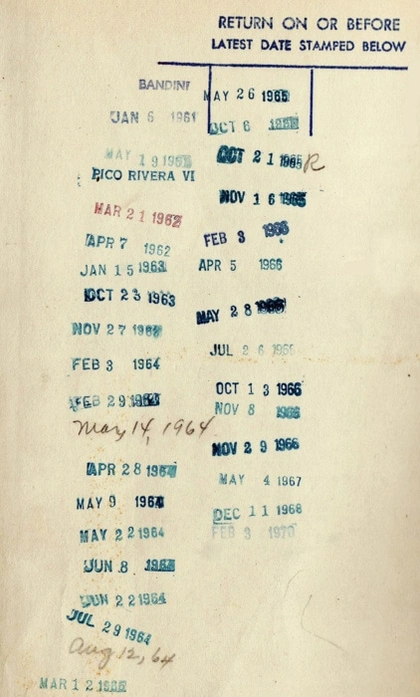 RETURN ON OR BEFORE
LATEST DATE STAMPED BELOW
BANDINI
JAN 6 1961
MAY 19
PICO RIVERA VI
MAR 21 1962
APR 7 1962
JAN 15 1963
OCT 23 1963
NOV 27
FEB 3 1964
FEB 29
May 14, 1964
APR 28 1964
MAY 9 1964
MAY 22 1964
JUN 8
JUN 22 1964
JUL 29 1964
Aug 12, 64
MAR 12
MAY 26 1965
OCT 6
OCT 21 1965 R
NOV 16 1965
FEB 3 1966
APR 5 1966
MAY 28
JUL 26 1966
OCT 13 1966
NOV 8 1966
NOV 29 1966
MAY 4 1967
DEC 11 1968
FEB 3 1970